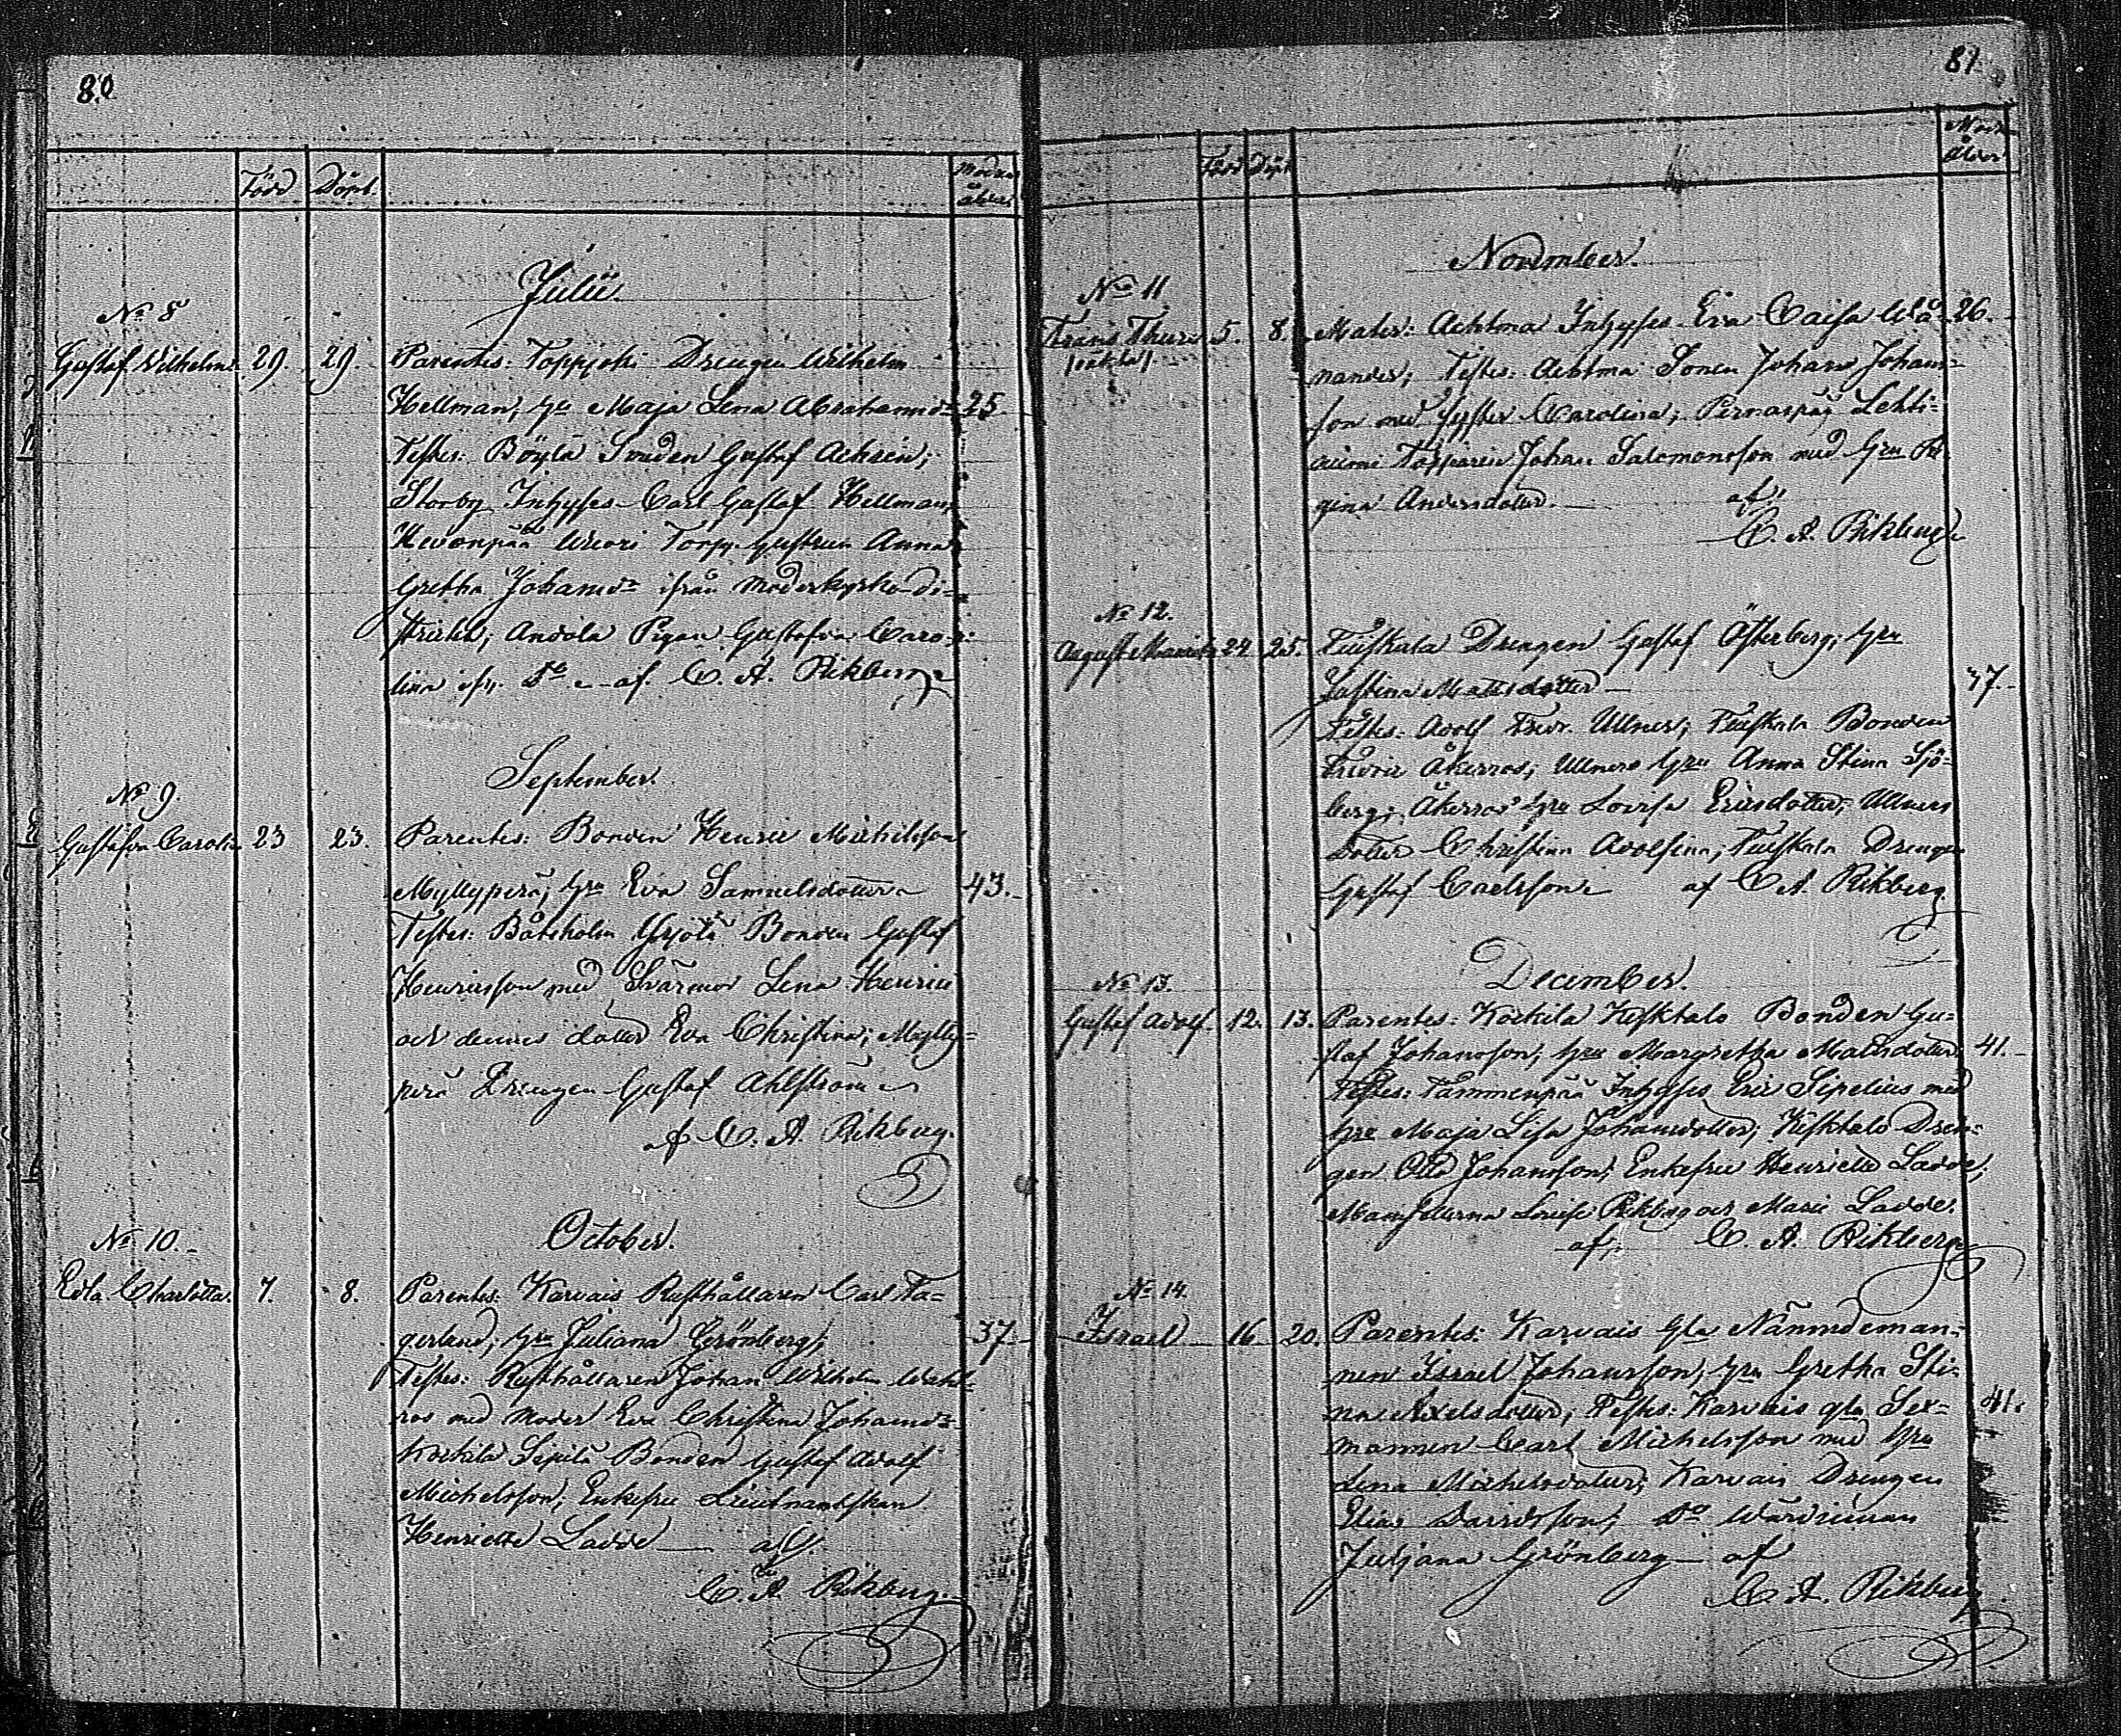 80
Född Döpt. Modrens ålder
Julii.
No 8
Gustaf Wilhelm 29. 29. Parentes: Torppjoki Drengen Wilhelm
Hellman, hru Maja Lena Abrahamsdr 25
Testes: Böylä Smeden Gustaf
Storby Inhyses Carl Gustaf Hellman,
Hevonpää Wuori Torp. hustrun Anna
Gretha Johansdr ifrån moderkyrko di-
striktet; Andola Pigan Gustafva Caro-
lina ifr. Do af C. A. Rikberg
September.
No 9.
Gustafva Carolin 23 23. Parentes: Bonden Henric Michelsson
Myllyperä; hru Eva Samuelsdotter 43.
Testes: Båtsholm Yrjölä Bonden Gustaf
Henricsson med Svärmor Lena Henrics
och dennes dotter Eva Christina; Mylly-
perä Drengen Gustaf Ahlström
af C. A. Rikberg.
October.
No 10.
Edla Charlotta. 7. 8. Parentes: Karvais Rusthållaren Carl Fa-
gerlund; hru Juliana Grönberg; 37
Testes: Rusthållaren Johan Wilhelm
ros med Moder Eva Christina Johansdr
Koskila Sipilä Bonden Gustaf Adolf
Michelsson; Enkefru Lieutnantskan
Henriette Ladde af
C. A. Rikberg.
81
Född Döpt Modr. ålder
November.
No 11
Frans Thure 5. 8. Mater: Achtma Inhyses Eva Caisa Wä- 26.
/oäkta/ nander; Testes: Achtma Sonen Johan Johans-
son med Syster Carolina; Pernaspää Lehti-
niemi Torparen Johan Salomonsson med hru Re-
gina Andersdotter. af
C. A. Rikberg
No 12.
August Mauritz 24 25. Tuiskala Drengen Gustaf Österberg; hru
Justina Mattsdotter 37.
Testes: Adolf Fredr. Ullner; Tuiskala Bonden
Fredric Åkerros; Ullners hru Anna Stina Sjö-
berg; Åkerros' hru Lovisa Ericsdotter; Ullners
dotter Christina Adolfina; Tuiskala Drengen
Gustaf Carlsson af C A. Rikberg.
December.
No 13.
Gustaf Adolf. 12. 13. Parentes: Koskila Kesktalo Bonden Gu-
staf Johansson, hru Margretha Mattsdotter; 41.
Testes: Tammenpää Inhyses Eric Sipelius med
hru Maja Lisa Johansdotter; Kesktalo Dren-
gen Otto Johansson; Enkefru Henriette Ladde;
Mamsellerna Lovise Rikberg och Marie Ladde.
af, C. A. Rikberg
No 14.
Israel 16 20. Parentes: Karvais gla Nämndeman-
nen Israel Johansson, hru Gretha Sti-
na Axelsdotter; Testes: Karvais gla Sex- 41.
mannen Carl Michelsson med hru
Lena Michelsdotter; Karvais Drengen
Elias Davidsson; Do Wärdinnan
Juljana Grönberg af
C. A. Rikberg